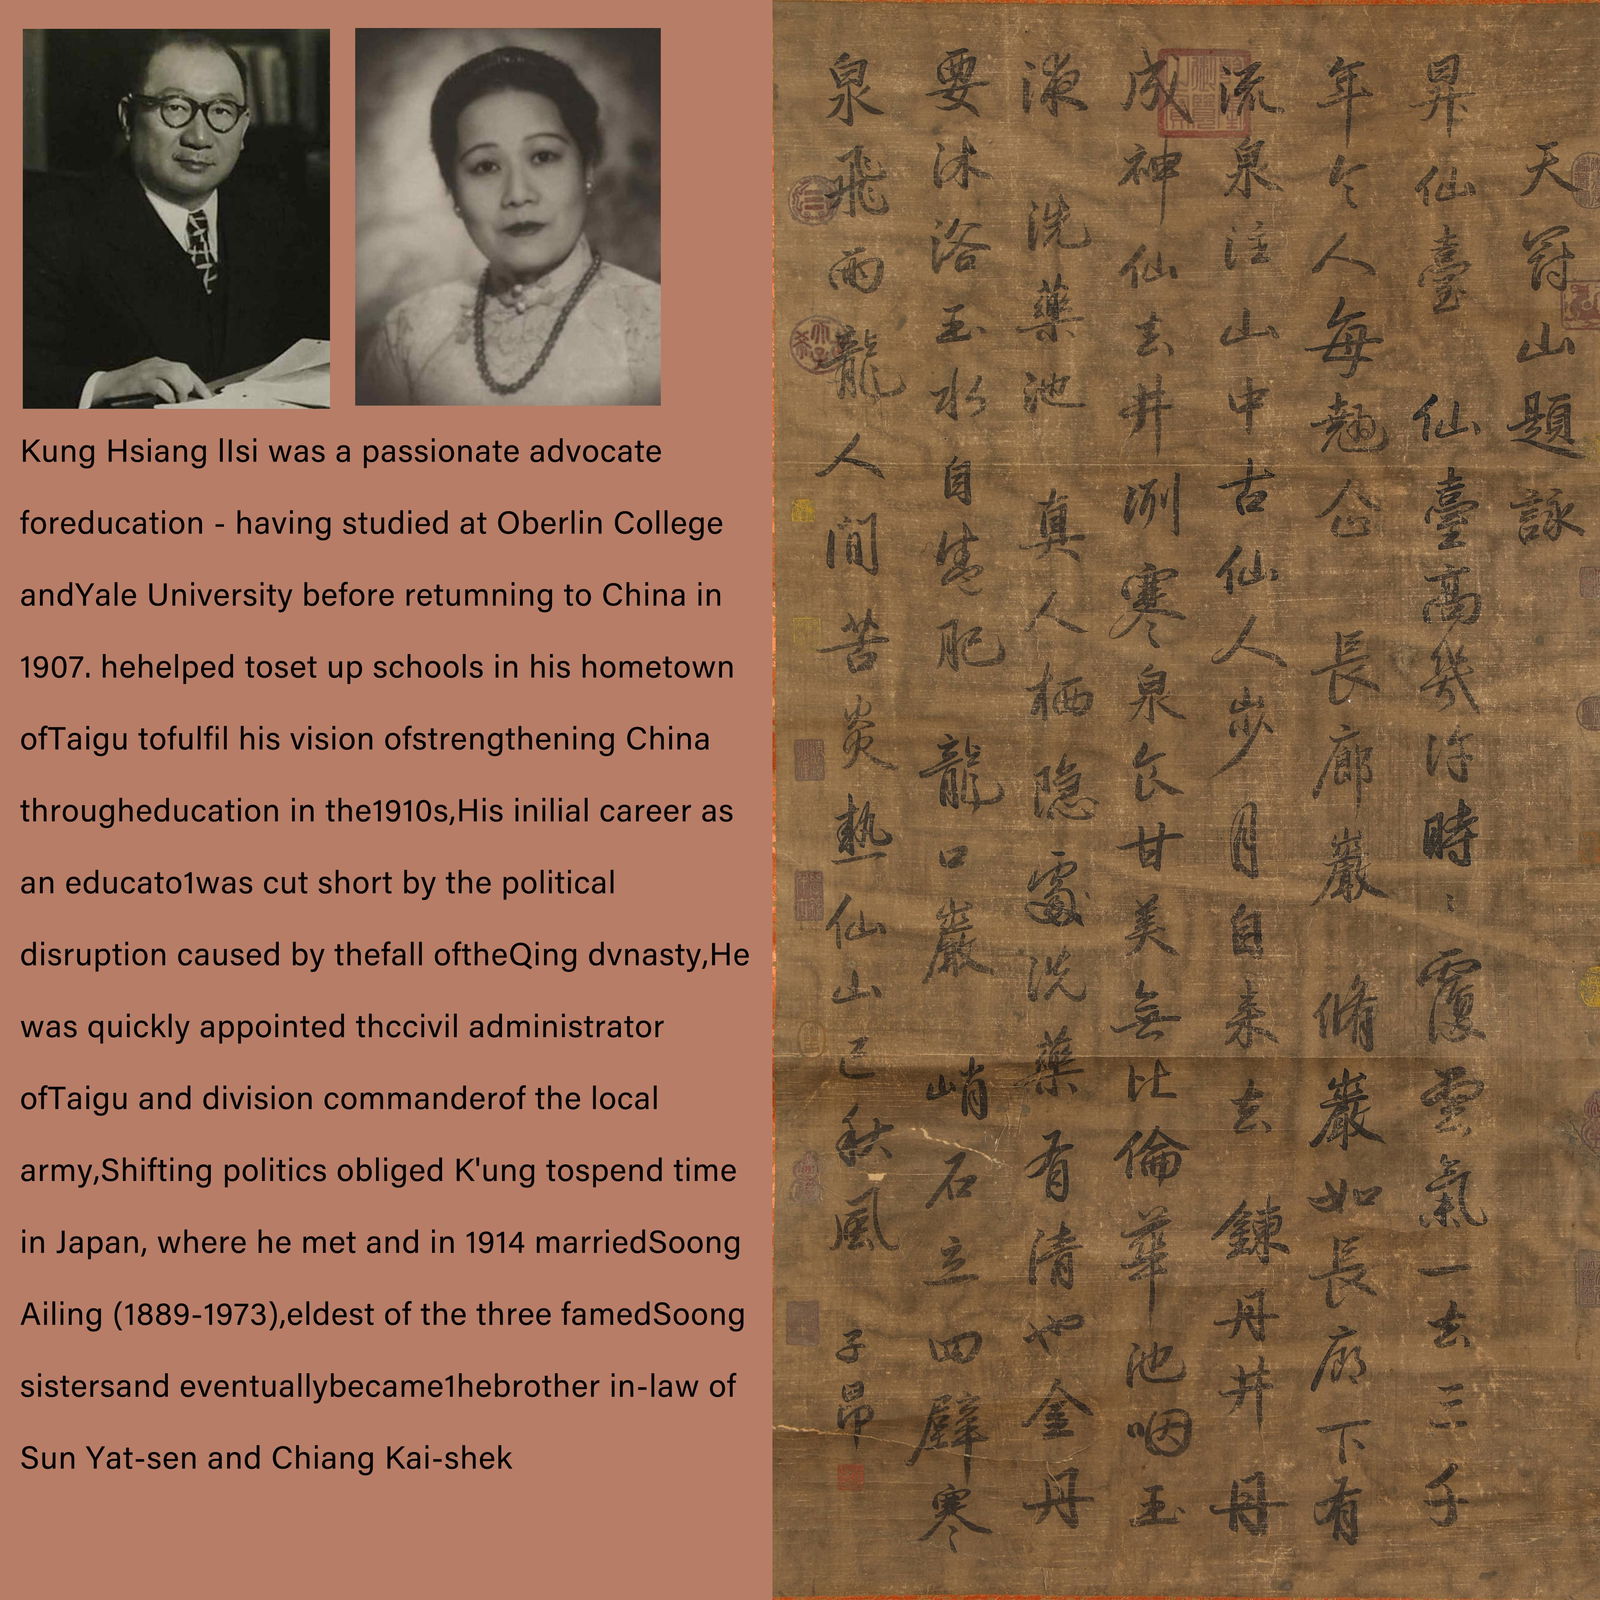 Kung Hsiang lIsi was a passionate advocate
foreducation - having studied at Oberlin College
andYale University before retumning to China in
1907. hehelped toset up schools in his hometown
ofTaigu tofulfil his vision ofstrengthening China
througheducation in the1910s,His inilial career as
an educato1was cut short by the political
disruption caused by thefall oftheQing dvnasty,He
was quickly appointed thccivil administrator
ofTaigu and division commanderof the local
army,Shifting politics obliged K'ung tospend time
in Japan, where he met and in 1914 marriedSoong
Ailing (1889-1973),eldest of the three famedSoong
sistersand eventuallybecame1hebrother in-law of
Sun Yat-sen and Chiang Kai-shek
天冠山題詠
昇仙臺 仙臺高幾許時〻覆雲氣一去三千
年令人每翹企 長廊巖 脩巖如長廊下有
流泉注山中古仙人步月自來去 鍊丹井 丹
成神仙去井冽寒泉食甘美無比倫華池咽玉
液 洗藥池 真人栖隱處洗藥有清池金丹
要沐浴玉水自生肥 龍口巖 峭石立四壁寒
泉飛雨龍人間苦炎熱仙山已秋風 子昂